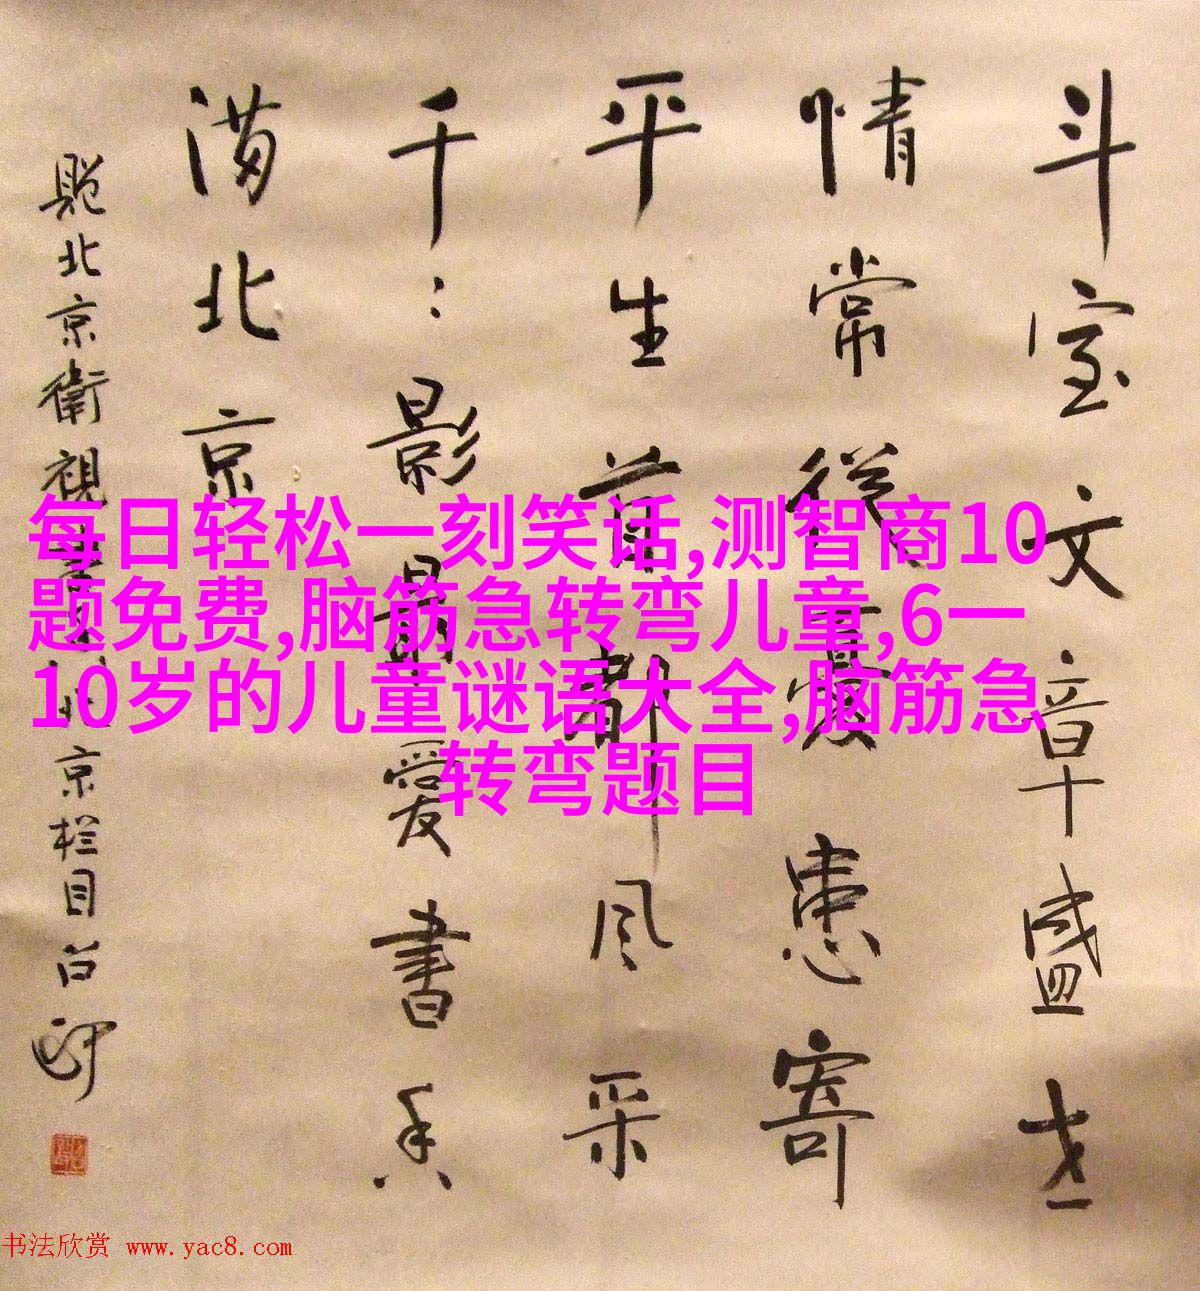 斗室文章盛世
情常從憂患寄
平生首都风采
千〻影最爱書香
满北京
题北京衛視書香北京栏目
每日轻松一刻笑话,测智商10
题免费,脑筋急转弯儿童,6一
10岁的儿童谜语大全,脑筋急
转弯题目
书法欣赏 www.yac8.com